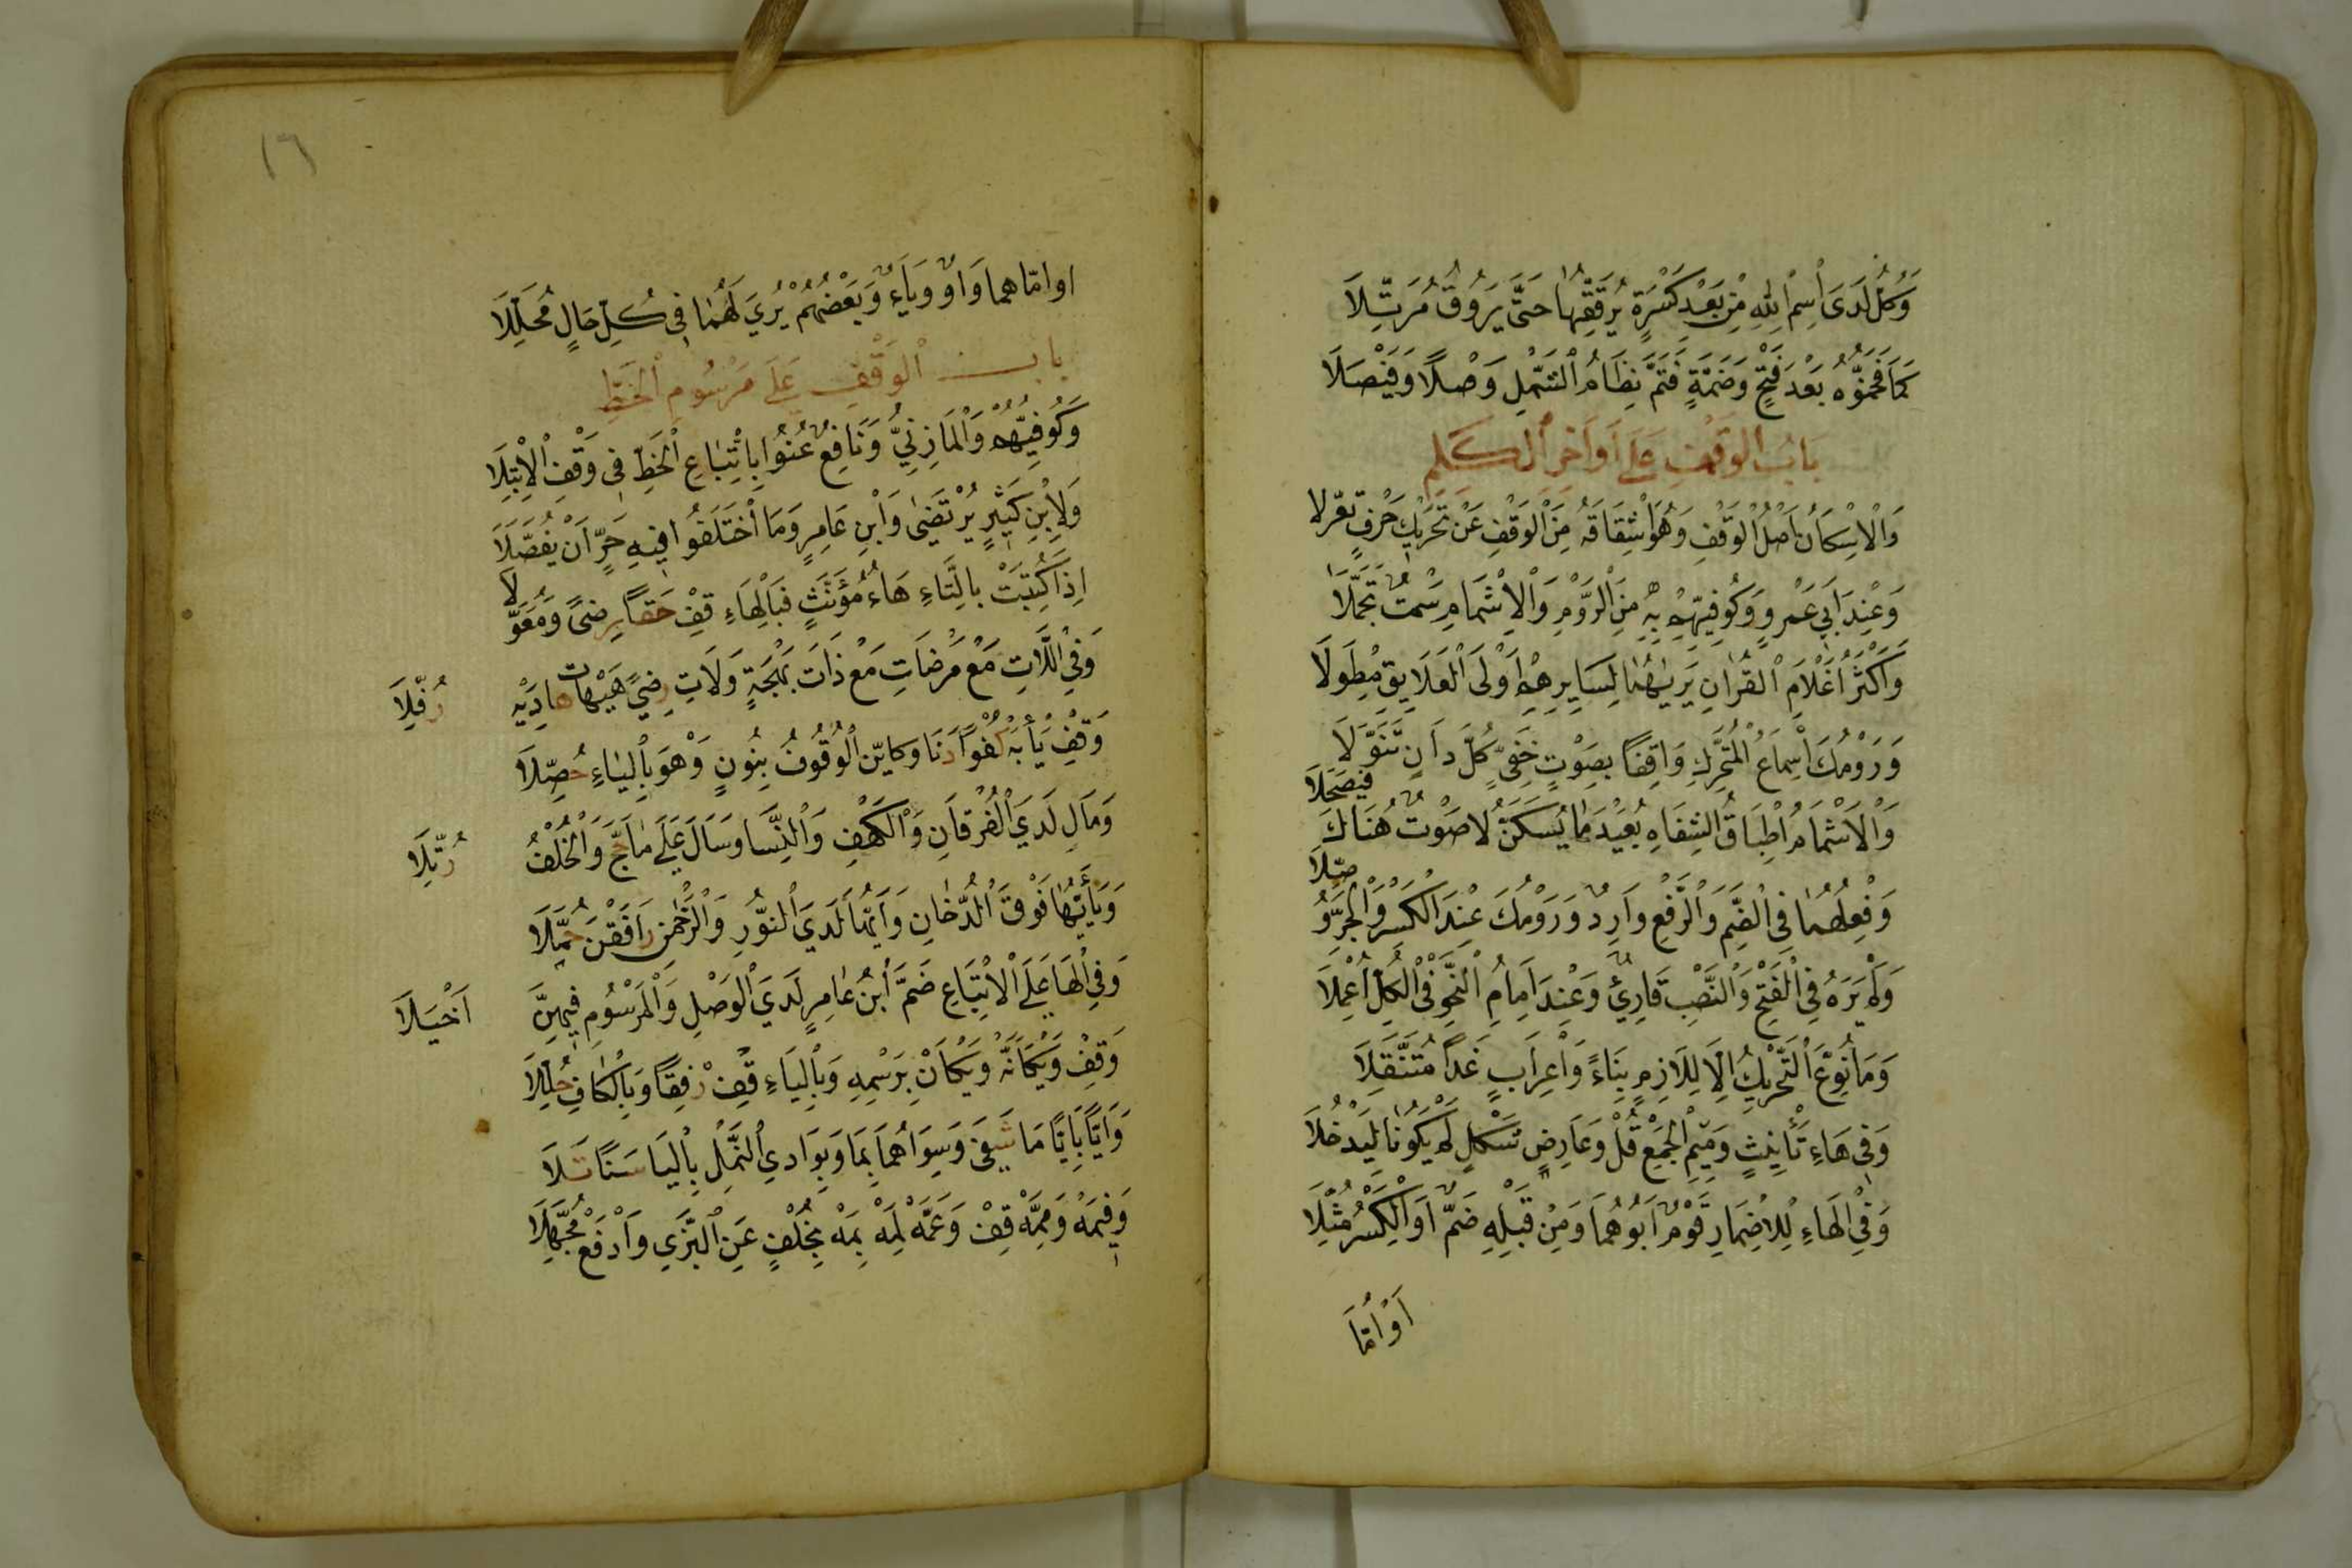 وَكُلٌّ لَدَى اسْمِ اللهِ مِنْ بَعْدِ كَسْرَةٍ يُرَقِّقُهَا حَتَّى يَرُوقَ مُرَتَّلَا
كَمَا فَخَّمُوهُ بَعْدَ فَتْحٍ وَضَمَّةٍ فَتَمَّ نِظَامُ الشَّمْلِ وَصْلًا وَفَيْصَلَا
بَابُ الْوَقْفِ عَلَى أَوَاخِرِ الْكَلِمِ
وَالْاِسْكَانُ أَصْلُ الْوَقْفِ وَهُوَ اشْتِقَاقُهُ مِنَ الْوَقْفِ عَنْ تَحْرِيكِ حَرْفٍ تَعَزَّلَا
وَعِنْدَ اَبِي عَمْرٍو وَكُوفِيِّهِمْ بِهِ مِنَ الرَّوْمِ وَالْاِشْمَامِ سَمْتٌ تَجَمَّلَا
وَأَكْثَرُ أَعْلَامِ الْقُرَانِ يَرَيهُمَا لِسَايِرِهِمْ أَوْلَى الْعَلَايِقِ مِطْوَلَا
وَرَوْمُكَ اِسْمَاعُ الْمُحَرَّكِ وَاقِفًا بِصَوْتٍ خَفِيٍّ كُلَّ دَانٍ تَنَوَّلَا
وَالْاشْمَامُ اِطْبَاقُ الشِّفَاهِ بُعَيْدَ مَا يُسَكَّنُ لَا صَوْتٌ هُنَاكَ فَيَصْحَلَا
وَفِعْلُهُمَا فِي الضَّمِّ وَالرَّفْعِ وَارِدٌ وَرَوْمُكَ عِنْدَ الْكَسْرِ وَالْجَرِّ وُصِّلَا
وَلَمْ يَرَهُ فِي الْفَتْحِ وَالنَّصْبِ قَارِئٌ وَعِنْدَ اِمَامِ النَّحْوِ فِي الْكُلِّ أُعْمِلَا
وَمَا نُوِّعَ التَّحْرِيكُ اِلَّا لِلَازِمٍ بِنَاءً وَاِعْرَابٍ غَدَا مُتَنَقِّلَا
وَفِي هَاءِ تَأْنِيثٍ وَمِيمِ الْجَمْعِ قُلْ وَعَارِضِ شَكْلٍ لَمْ يَكُونَا لِيَدْخُلَا
وَفِي الْهَاءِ لِلْاِضْمَارِ قَوْمٌ أَبَوْهُمَا وَمِنْ قَبْلِهِ ضَمٌّ اَوِ الْكَسْرُ مُثِّلَا
اَوْ اُمَّا
١٦
او امّاهما وَاوٌ وَيَاءٌ وَبَعْضُهُمْ يُرَي لَهُمَا فِي كُلِّ حَالٍ مُحَلِّلَا
باب الْوَقْفِ عَلَى مَرْسُومِ الْخَطِّ
وَكُوفِيُّهُمْ وَالْمَازِنِيُّ وَنَافِعٌ عُنُوا بِاتِّبَاعِ الْخَطِّ فِي وَقْفِ الْاِبْتِلَا
وَلِابْنِ كَثِيرٍ يُرْتَضَى وَابْنِ عَامِرٍ وَمَا اخْتَلَفُوا فِيهِ حَرٍ اَنْ يُفَصَّلَا
اِذَا كُتِبَتْ بِالتَّاءِ هَاءُ مُؤَنَّثٍ فَبِالْهَاءِ قِفْ حَقًّا رِضًى وَمُعَوَّلَا
وَفِي اللَّاتِ مَعْ مَرْضَاتِ مَعْ ذَاتَ بَهْجَةٍ وَلَاتَ رِضًي هَيْهَاتَ هَادِيهِ رُفِّلَا
وَقِفْ يَا أَبَهْ كُفْوًا دَنَا وَكَايِّنِ الْوُقُوفُ بِنُونٍ وَهْوَ بِالْيَاءِ حُصِّلَا
وَمَالِ لَدَي الْفُرْقَانِ وَالْكَهْفِ وَالنِّسَا وَسَالَ عَلَى مَا حَجَّ وَالْخُلْفُ رُتِّلَا
وَيَا أَيُّهَا فَوْقَ الدُّخَانِ وَأَيُّهَا لَدَي النُّورِ وَالرَّحْمٰنِ رَافَقْنَ حُمَّلَا
وَفِي الْهَا عَلَى الْاِتْبَاعِ ضَمَّ ابْنُ عَامِرٍ لَدَي الْوَصْلِ وَالْمَرْسُومِ فِيهِنَّ اَخْيَلَا
وَقِفْ وَيْكَأَنَّهُ وَيْكَأَنَّ بِرَسْمِهِ وَبِالْيَاءِ قِفْ رِفْقًا وَبِالْكَافِ حُلِّلَا
وَاَيًّا بِأَيًّا مَا شَفَى وَسِوَاهُمَا بِمَا وَبِوَادِي النَّمْلِ بِالْيَا سَنًا تَلَا
وَفِيمَهْ وَمِمَّهْ قِفْ وَعَمَّهْ لِمَهْ بِمَهْ بِخُلْفٍ عَنِ الْبَزِّي وَادْفَعْ مُجَهِّلَا